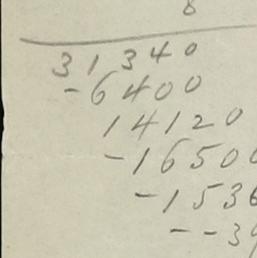 8
31340
-6400
14120
-1650
-153
--39